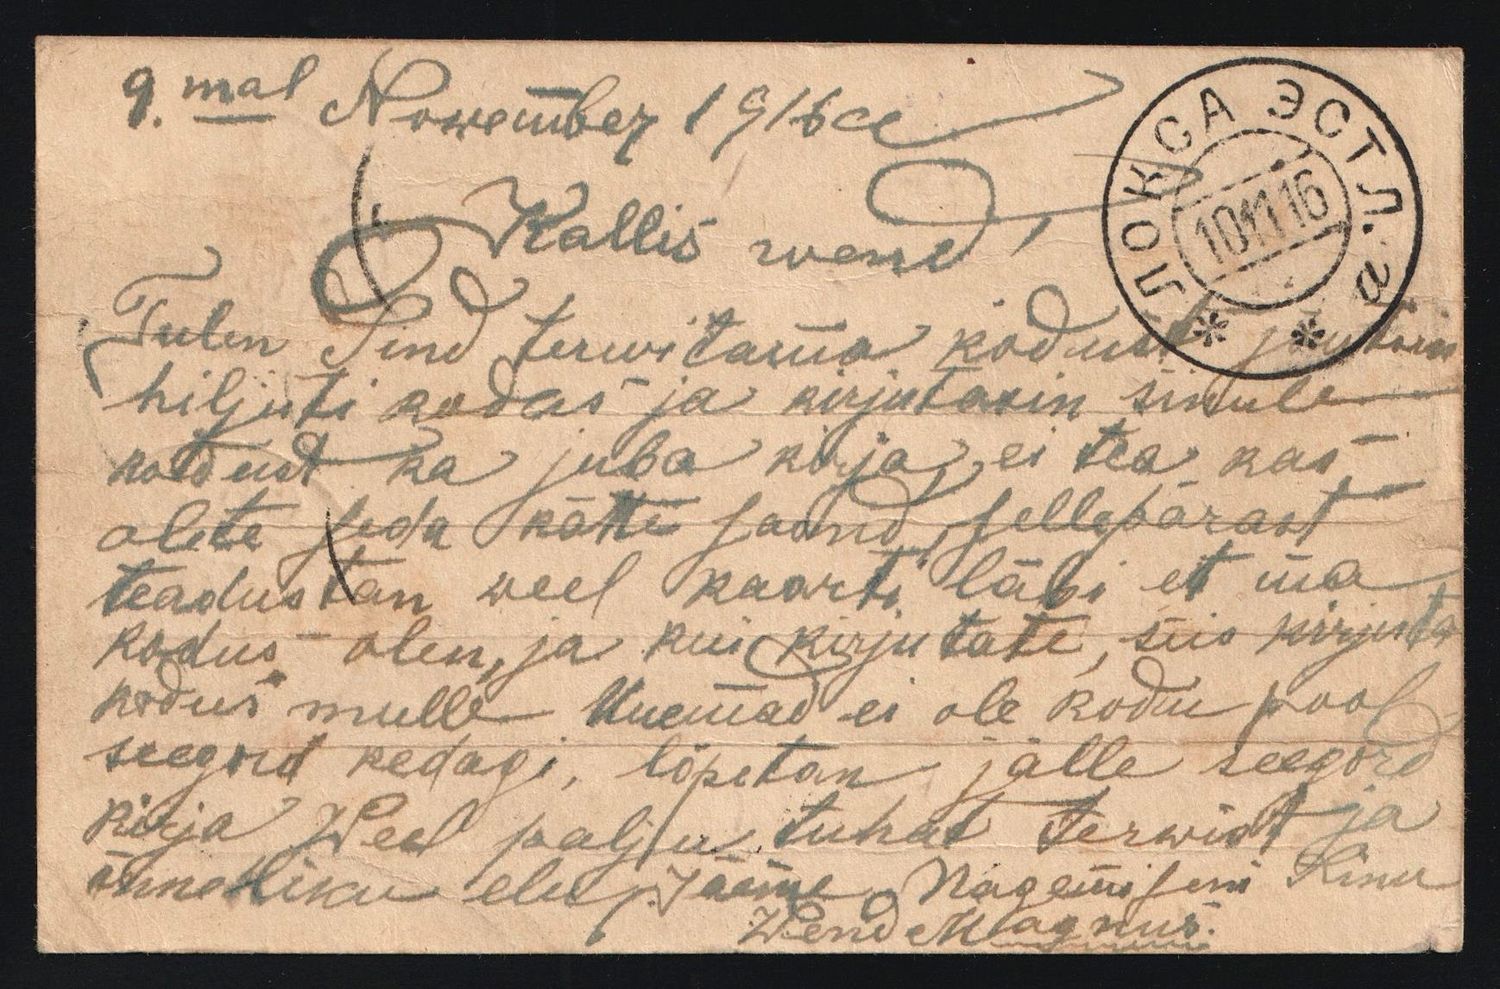 9. mal Nowember 1916 ce
Kallis wend!
ЛОКСА ЭСТЛ. а
10 11 16
Tulen Sind terwitama kodust joutsin
hiljuti kodus ja kirjutasin sinule
kodust ka juba kirja, ei tea kas
olete seda kätte saand, sellepärast
teadustan weel kaarti läbi et ma
kodus olen, ja kui kirjutate, siis kirjuta
kodus mulle Uuemad ei ole kodu pool
seegord kedagi, lõpetan jälle seegord
kirja Weel palju tuhat terwist ja
õnnelikku elu. Jääme Nägemiseni Sinu
Wend Magnus.